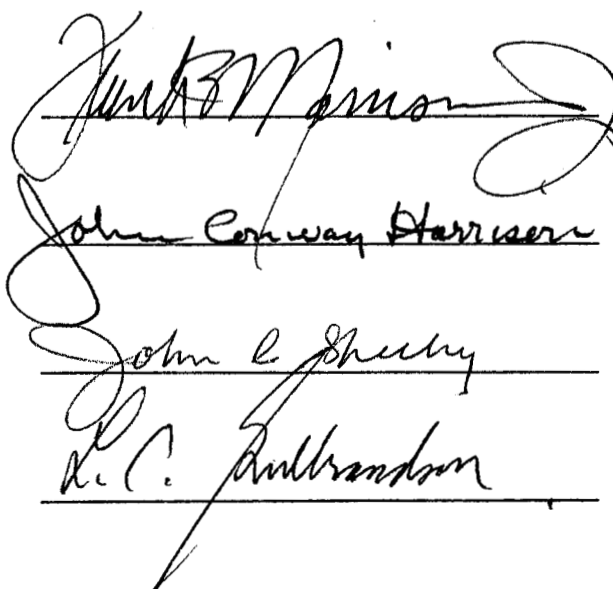 Frank B Morrison Jr
John Conway Harrison
John C Sheehy
L. C. Gulbrandson